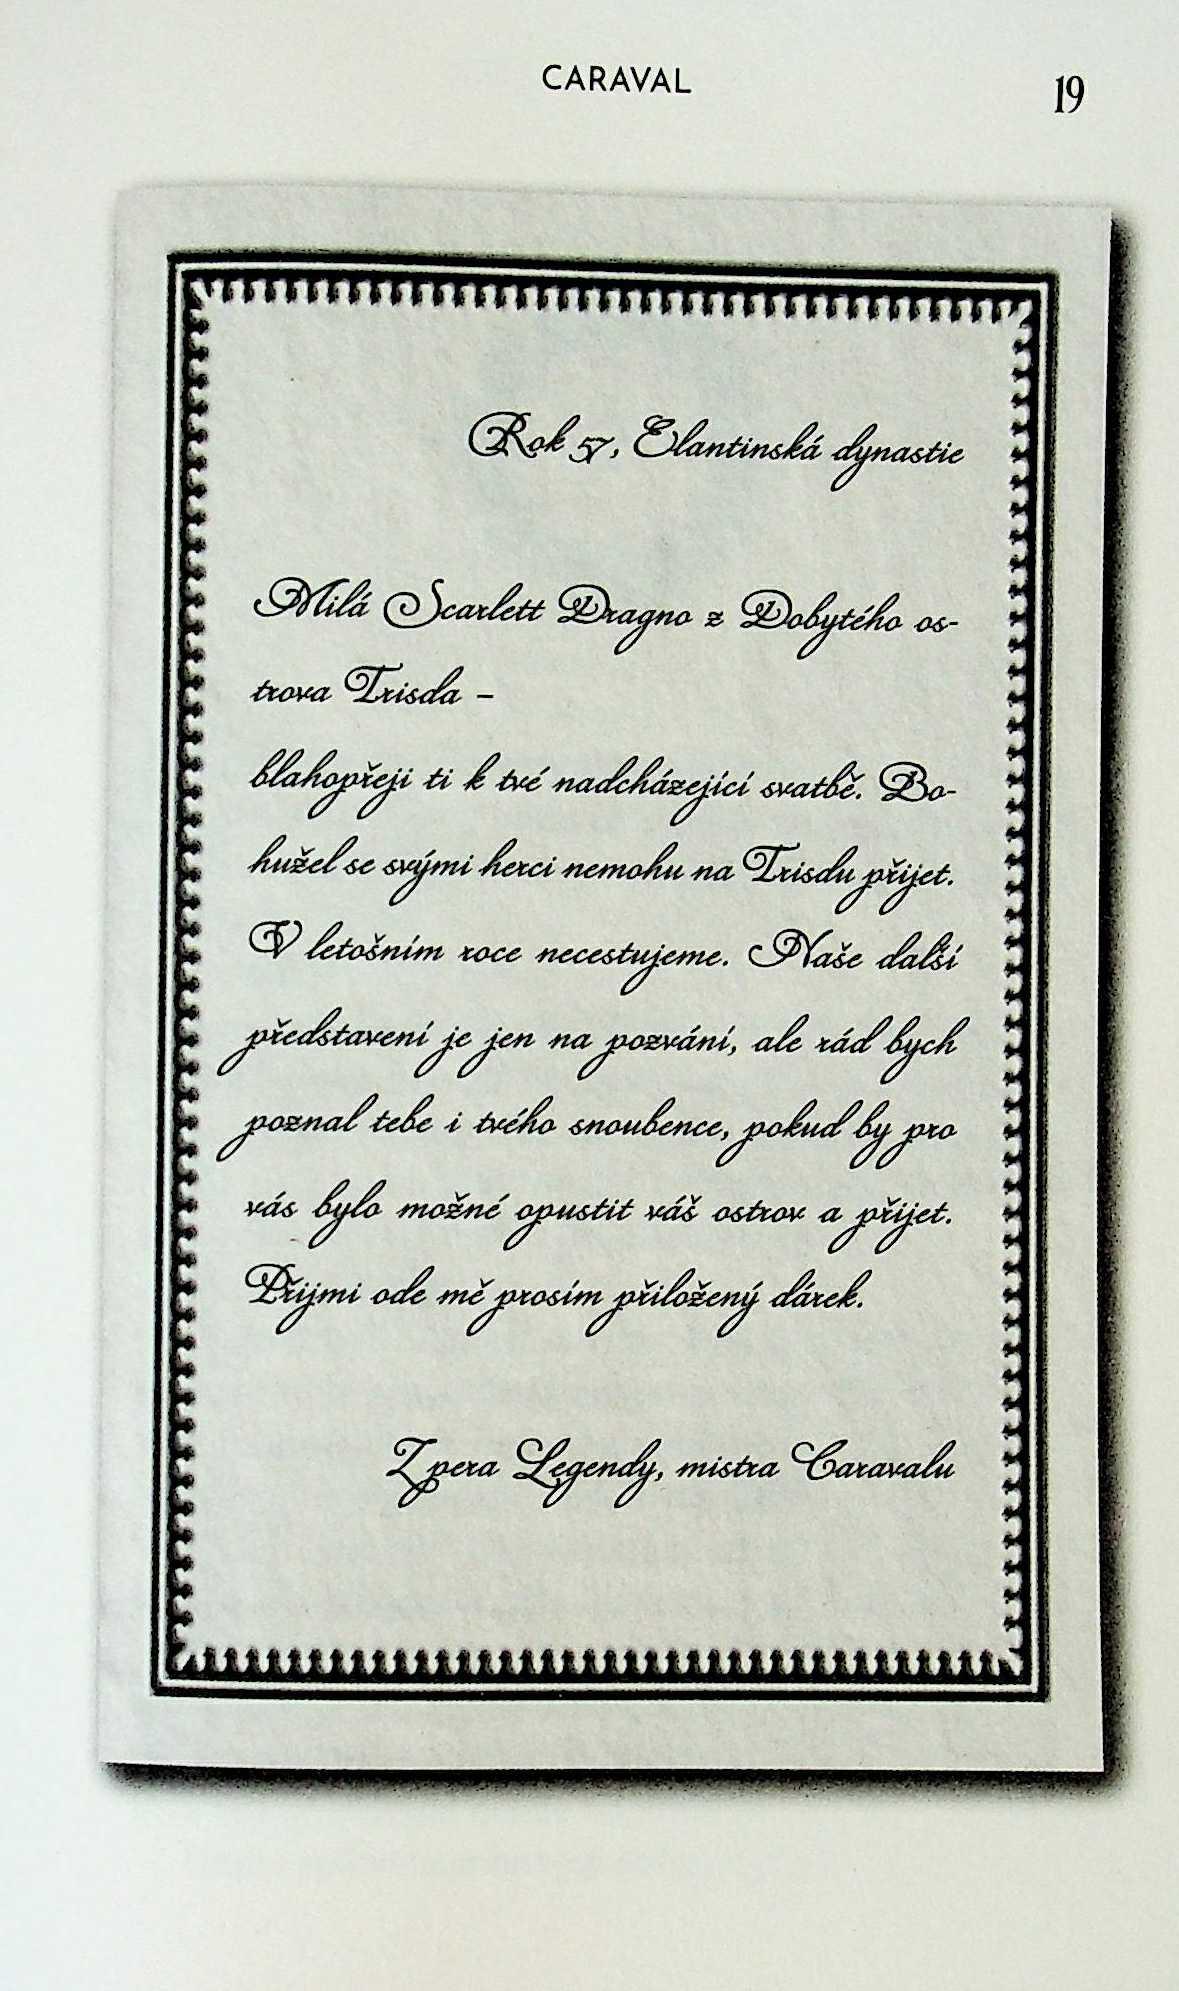 CARAVAL
19
Rok 57, Elantinská dynastie
Milá Scarlett Dragno z Dobytého os-
trova Trisda –
blahopřeji ti k tvé nadcházející svatbě. Bo-
hužel se svými herci nemohu na Trisdu přijet.
V letošním roce necestujeme. Naše další
představení je jen na pozvání, ale rád bych
poznal tebe i tvého snoubence, pokud by pro
vás bylo možné opustit váš ostrov a přijet.
Přijmi ode mě prosím přiložený dárek.
Z pera Legendy, mistra Caravalu